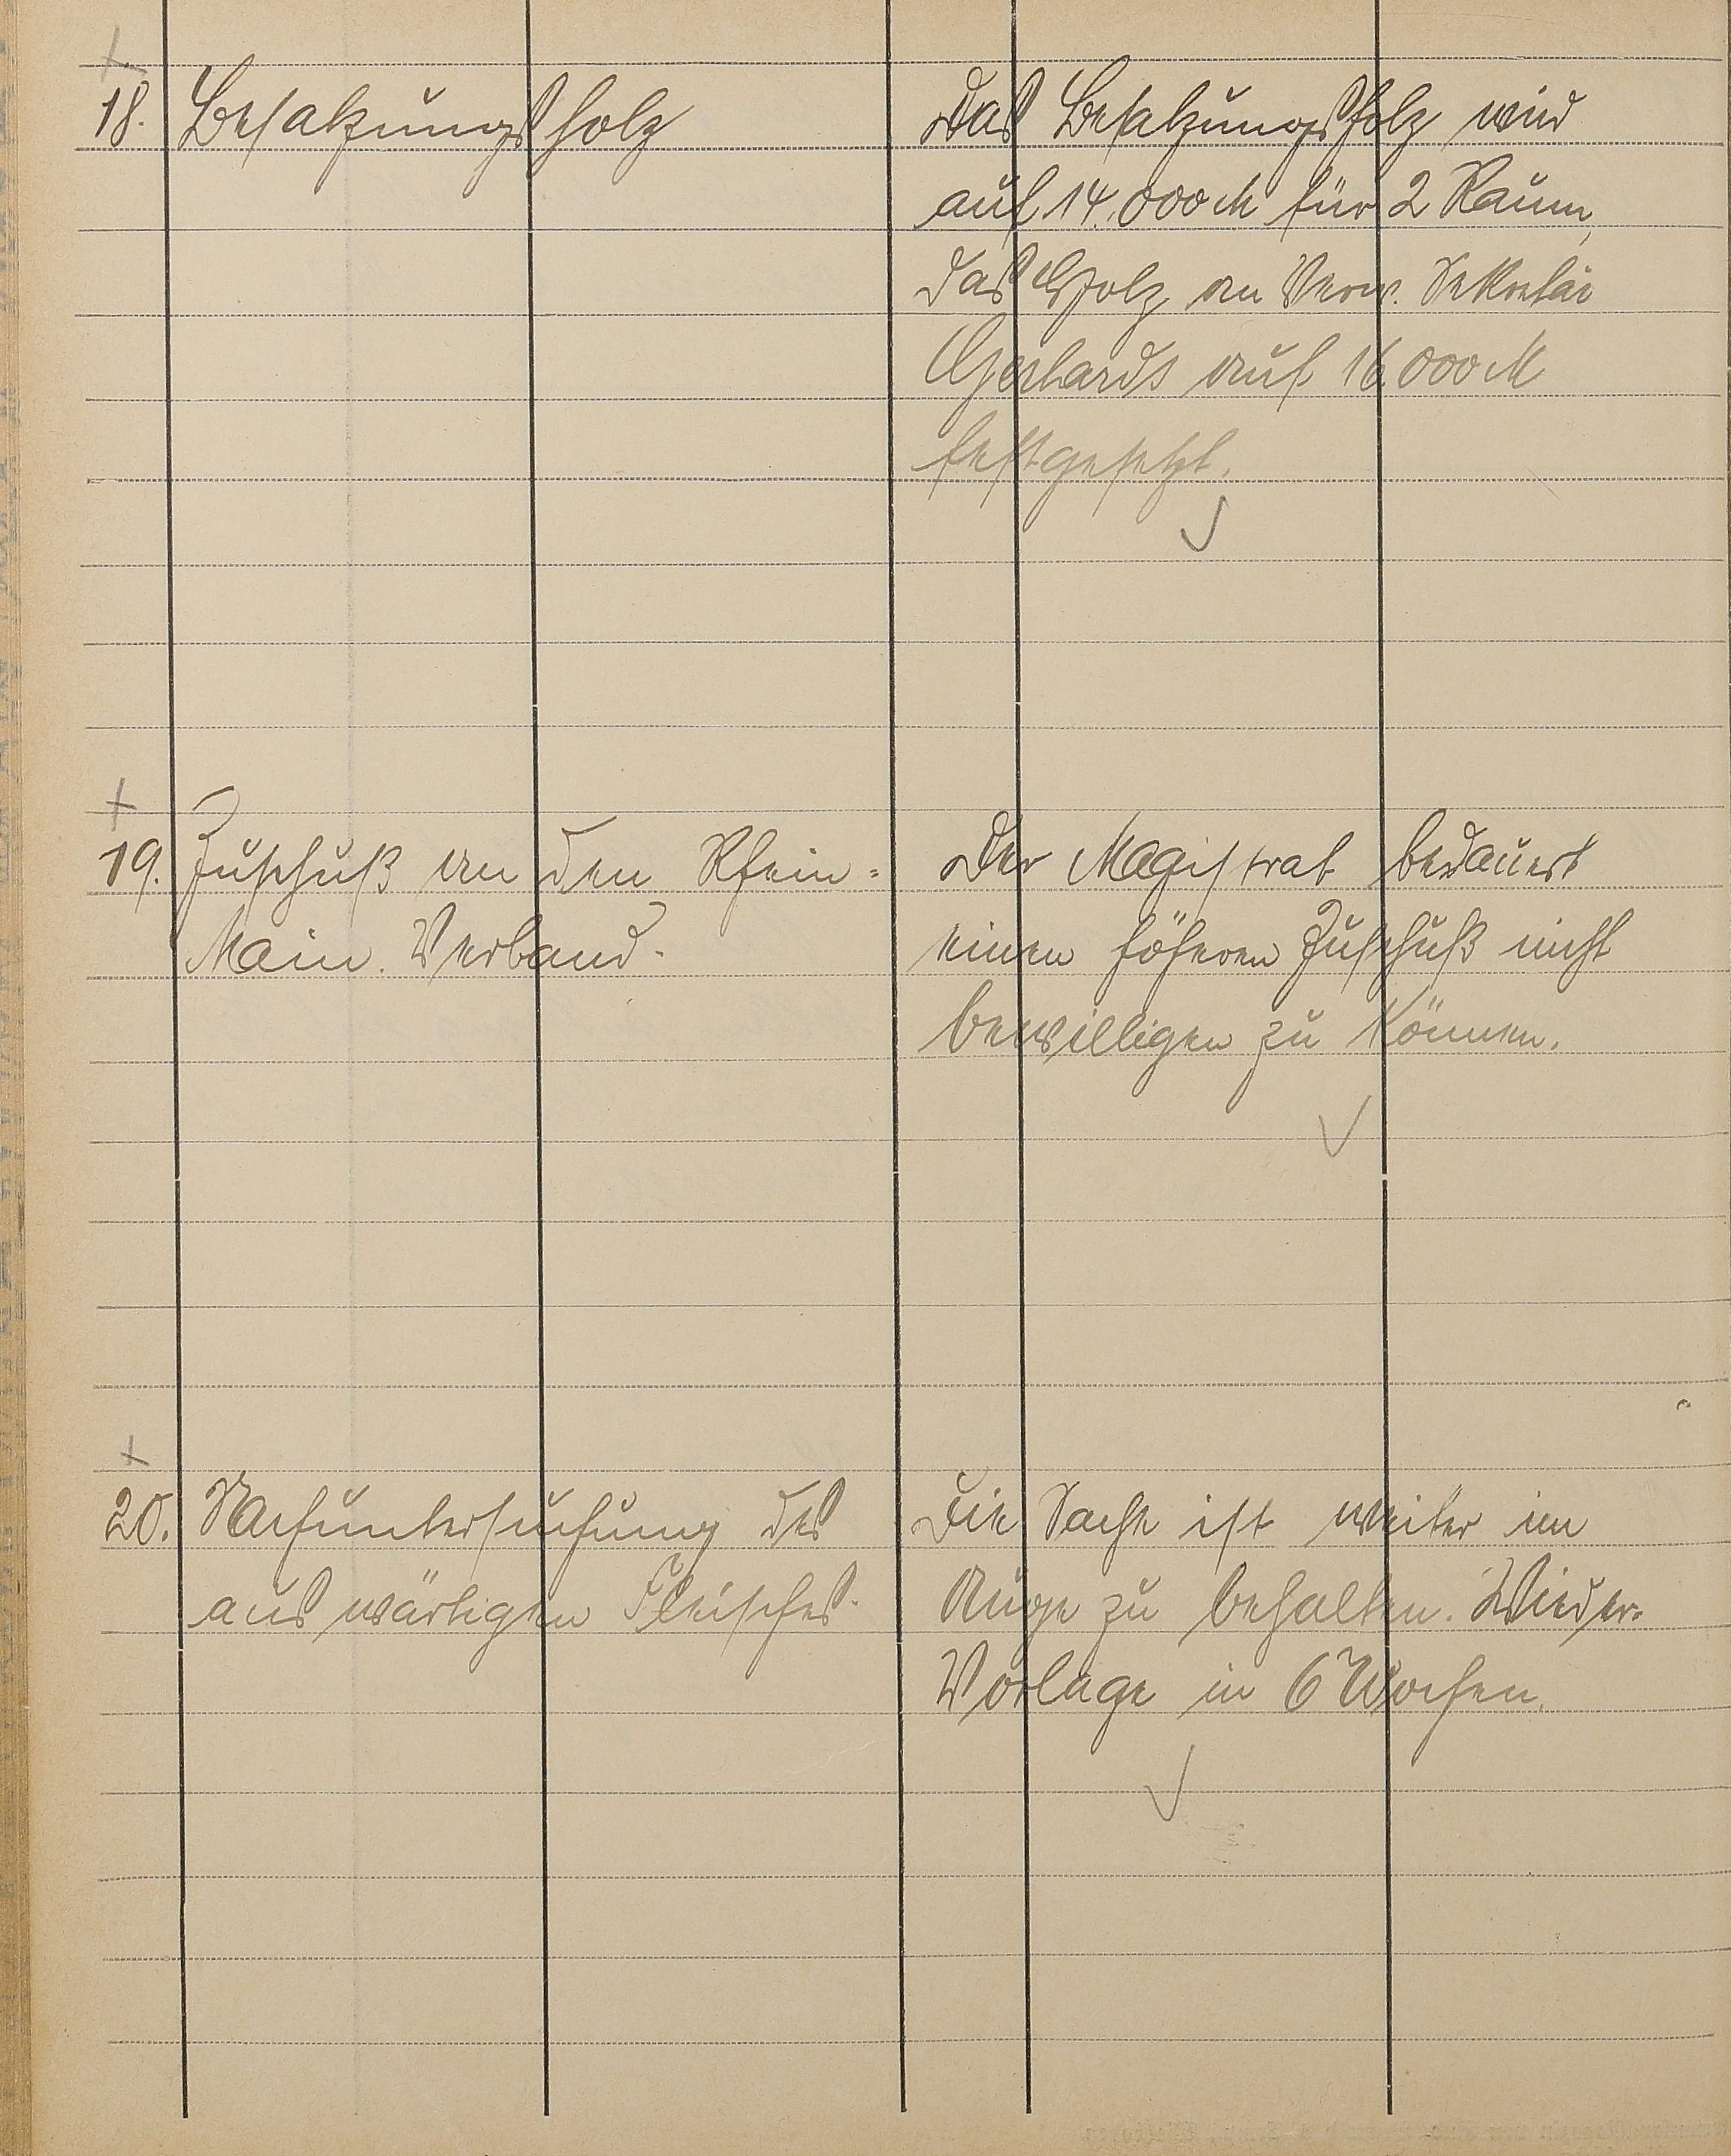 18. Besatzungsholz
Das Besatzungsholz wird
auf 14.000 M für 2 Raum,
das Holz an Verw. Sekretär
Gerhards auf 16.000 M
festgesetzt.
19. Zuschuß an den Rhein-
Main. Verband.
Der Magistrat bedauert
einen höheren Zuschuß nicht
bewilligen zu können.
20. Nachuntersuchung des
auswärtigen Fleisches.
Die Sache ist weiter im
Auge zu behalten. Wieder-
Vorlage in 6 Wochen.